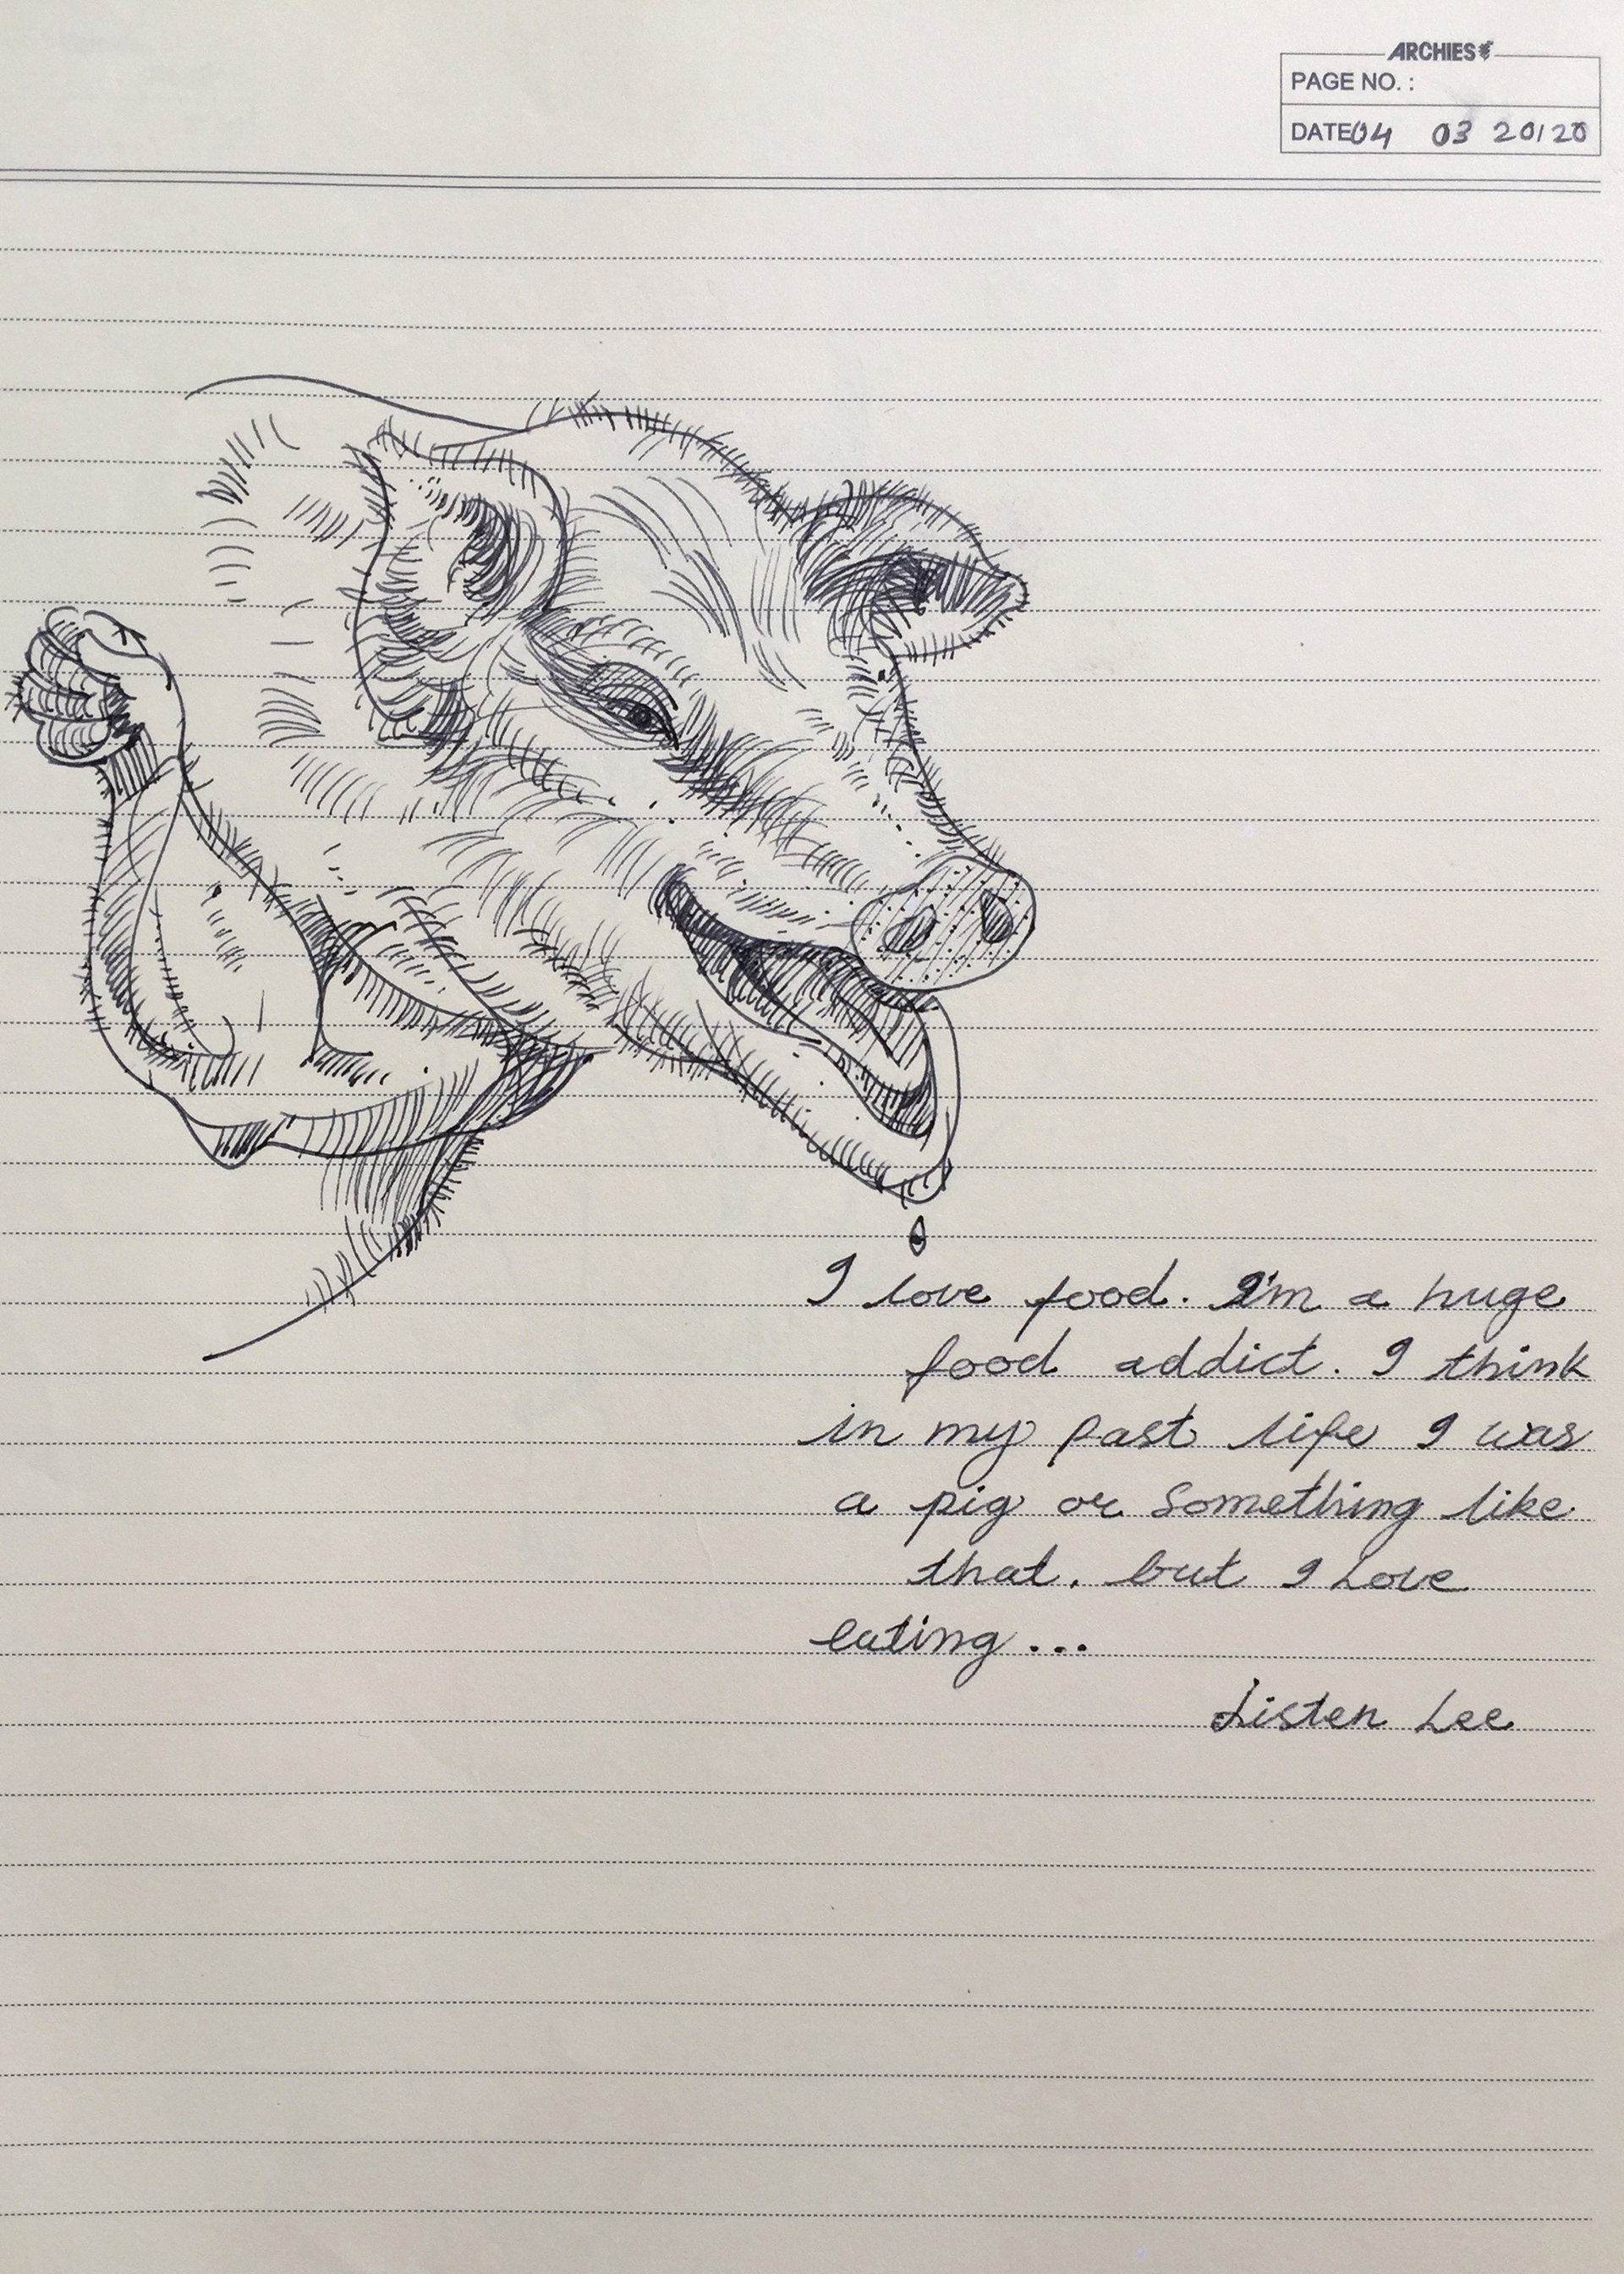 ARCHIES
PAGE NO. :
DATE 04 03 20120
I love food. I'm a huge
food addict. I think
in my past life I was
a pig or something like
that. but I Love
eating...
Listen Lee